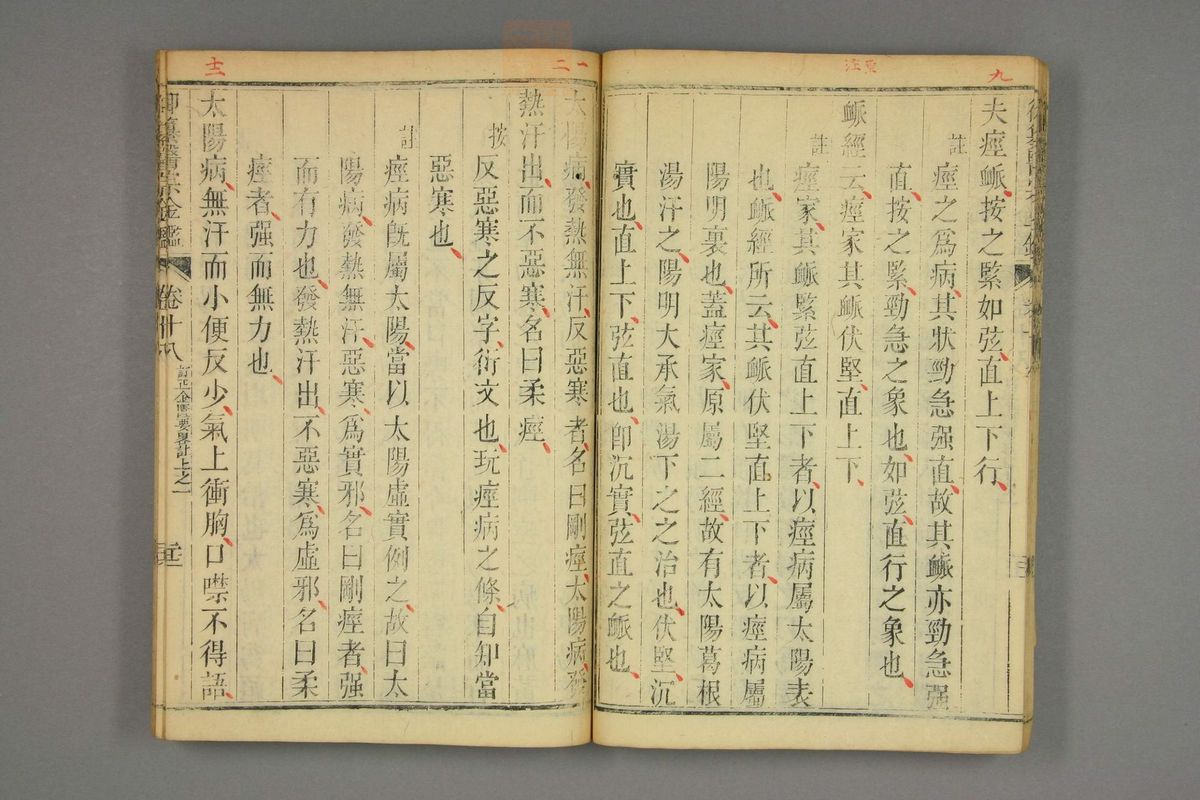 九
東
注
夫痙脈按之緊如弦直上下行
註
痙之爲病其狀勁急强直故其脈亦勁急强
直按之緊勁急之象也如弦直行之象也
脈經云痙家其脈伏堅直上下
註
痙家其脈緊弦直上下者以痙病屬太陽表
也脈經所云其脈伏堅直上下者以痙病屬
陽明裏也蓋痙家原屬二經故有太陽葛根
湯汗之陽明大承氣湯下之之治也伏堅沉
實也直上下弦直也卽沉實弦直之脈也
一二
太陽病發熱無汗反惡寒者名曰剛痙太陽病發
熱汗出而不惡寒名曰柔痙
按
反惡寒之反字衍文也玩痙病之條自知當
惡寒也
註
痙病旣屬太陽當以太陽虛實例之故曰太
陽病發熱無汗惡寒爲實邪名曰剛痙者强
而有力也發熱汗出不惡寒爲虛邪名曰柔
痙者强而無力也
太陽病無汗而小便反少氣上衝胸口噤不得語
十三
御纂醫宗金鑑
卷十八
訂正金匱要畧註上之一